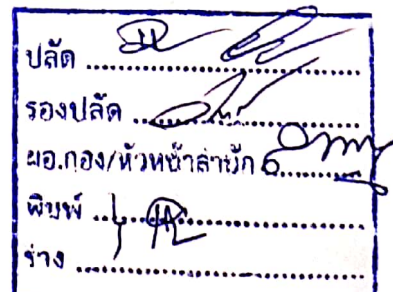 ปลัด ....................
รองปลัด ....................
ผอ.กอง/หัวหน้าสำนัก ....................
พิมพ์ ....................
ร่าง ....................